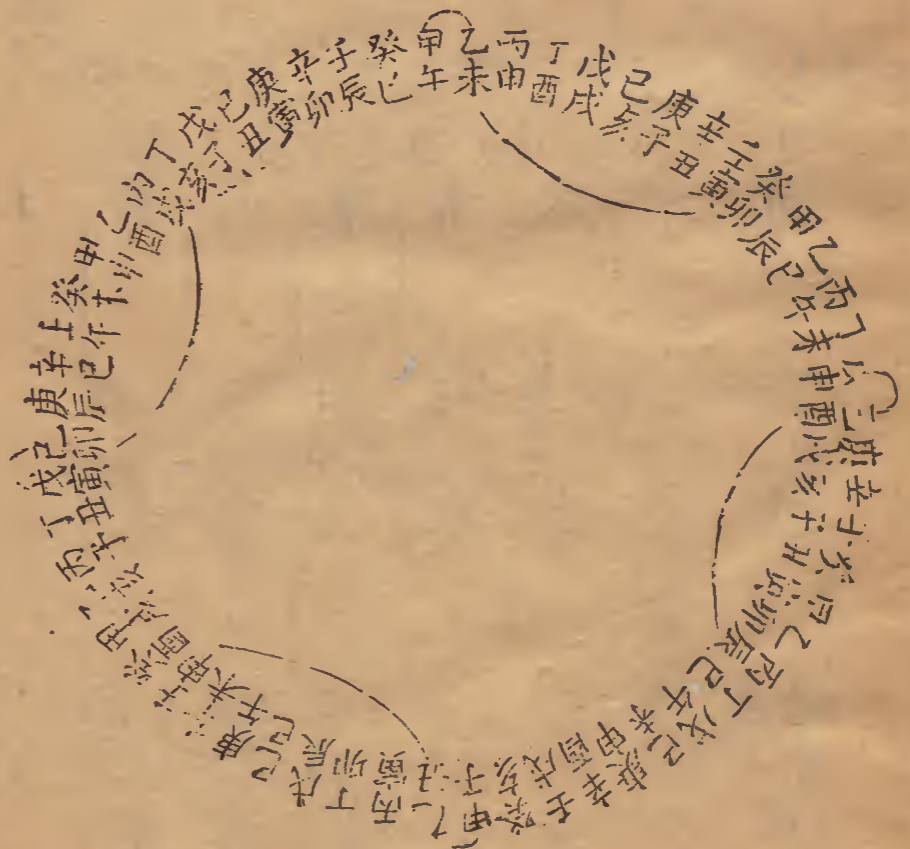 甲乙丙丁戊己庚癸甲丙丁戊己庚辛壬癸甲乙丙丁戊己庚辛子癸甲乙丙丁戊己庚辛壬癸甲乙丙丁庚辛壬癸甲乙丙丁戊己庚辛壬癸
子丑寅卯辰巳午未申酉戌亥子丑寅卯辰巳午未申酉戌亥丁丑寅卯辰巳午未申酉戌亥子丑寅卯辰巳午未申酉戌亥子丑寅卯辰巳午未申酉戌亥